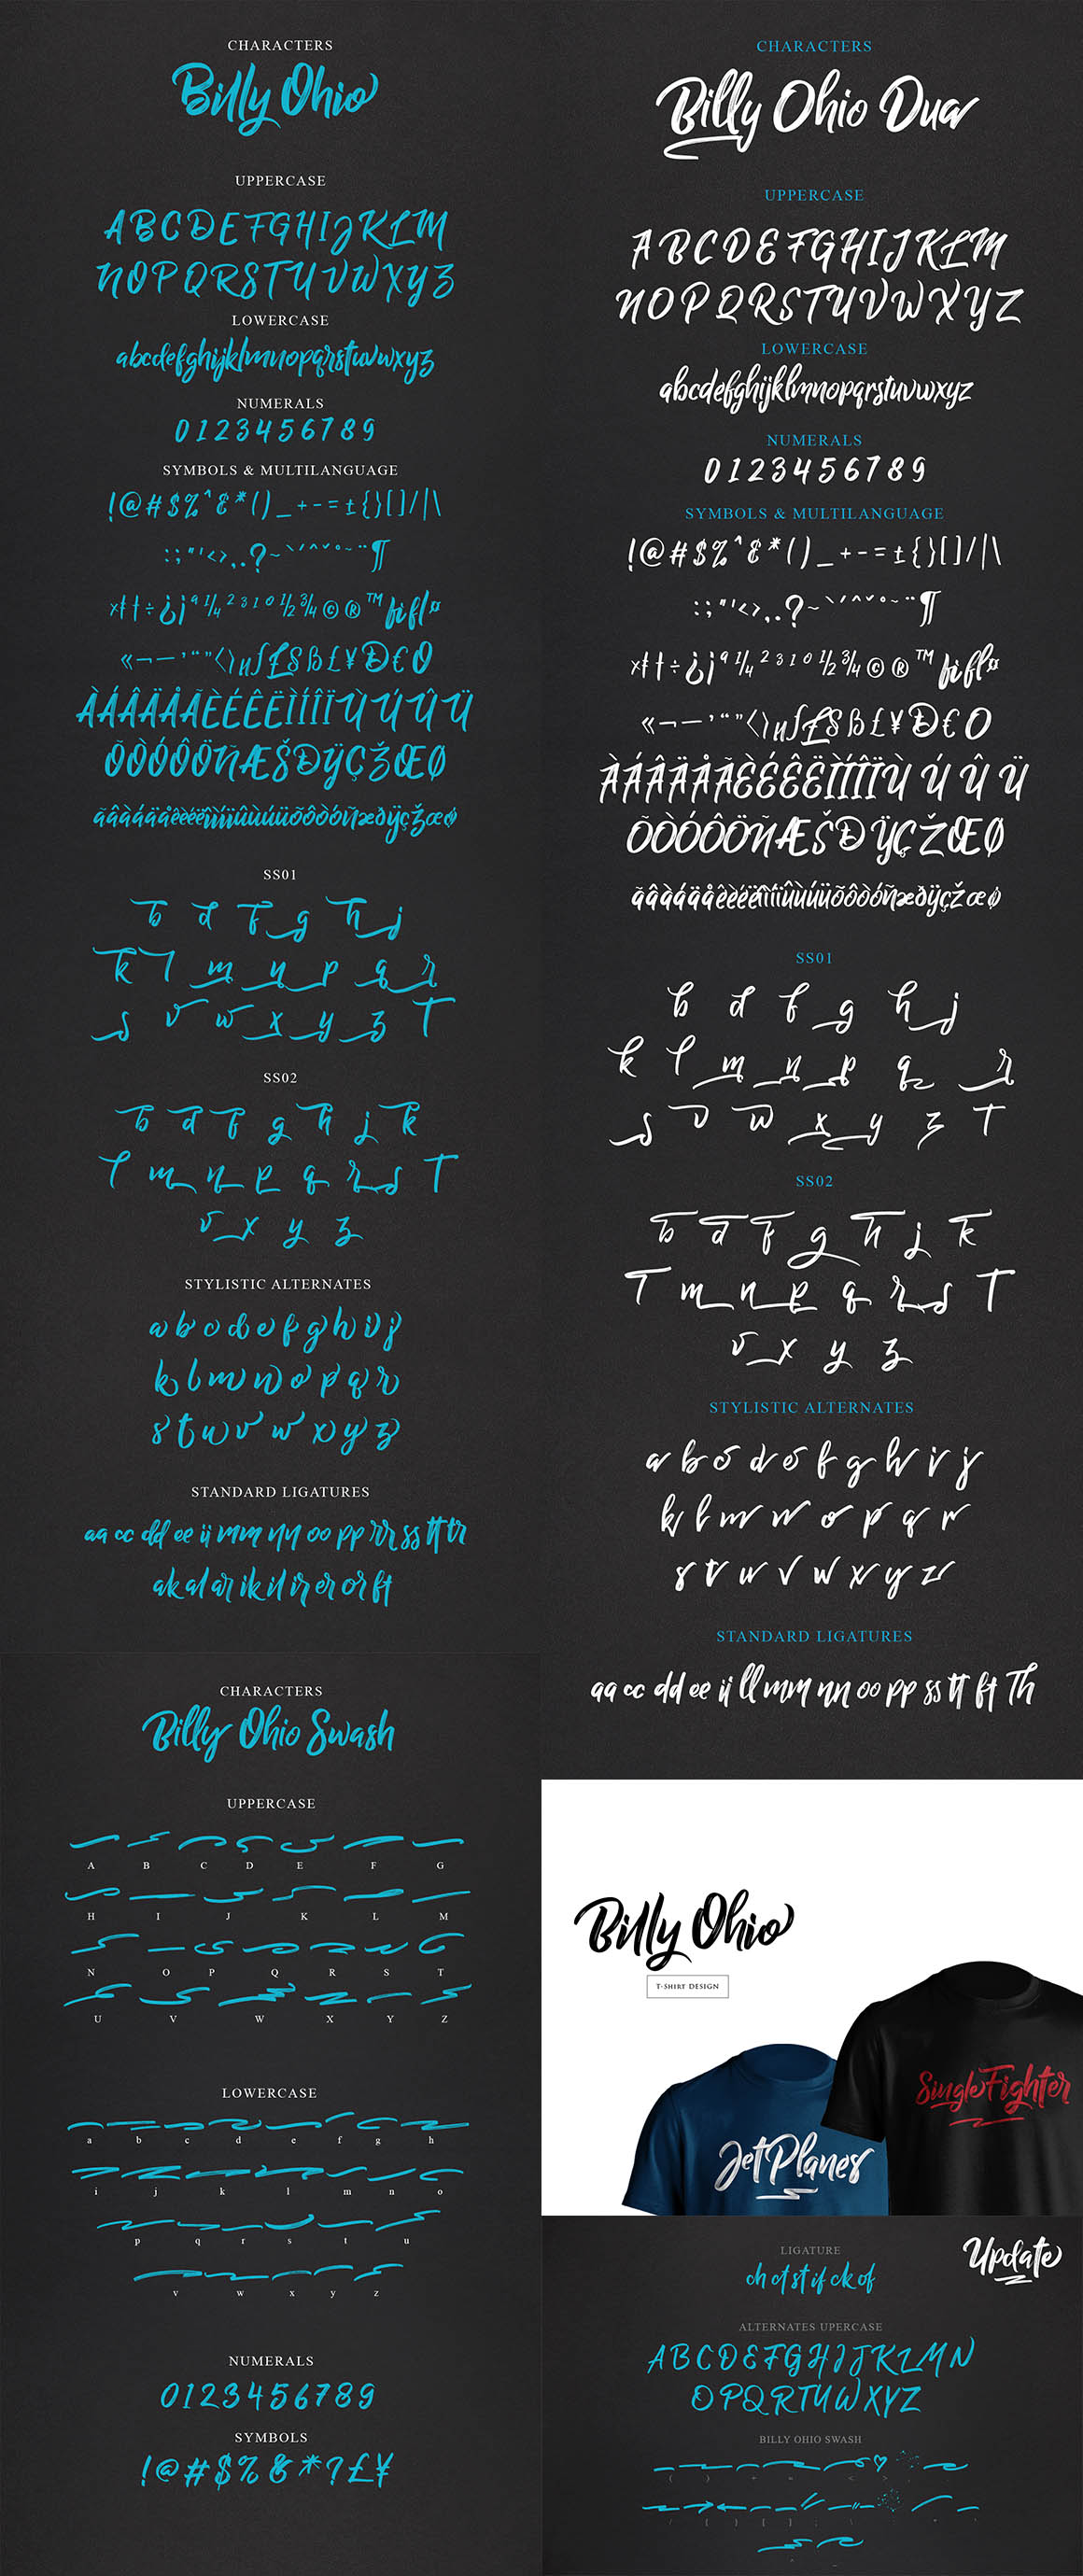 CHARACTERS
Billy Ohio
UPPERCASE
ABCDEFGHIJKLM
NOPQRSTUVWXYZ
LOWERCASE
abcdefghijklmnopqrstuvwxyz
NUMERALS
0123456789
SYMBOLS & MULTILANGUAGE
!@#$%^&*()_+-=±{}[]/|\
:;"'<>,.?~`´^ˇ°~¨¶
«¬—'“”‹›
ÀÁÂÄÅÃÈÉÊËÌÍÎÏÙÚÛÜ
ÕÒÓÔÖÑÆŠÐŸÇŽŒØ
SS01
b d f g h j
k l m n p q r
s v w x y z T
SS02
b d f g h j k
l m n p q r s T
v x y z
STYLISTIC ALTERNATES
a b c d e f g h i j
k l m n o p q r
s t u v w x y z
STANDARD LIGATURES
aa cc dd ee ii mm nn oo pp rr ss tt tr
ak al ar ik il ir er or ft
CHARACTERS
Billy Ohio Swash
UPPERCASE
A B C D E F G
H I J K L M
N O P Q R S T
U V W X Y Z
LOWERCASE
a b c d e f g h
i j k l m n o
p q r s t u
v w x y z
NUMERALS
0123456789
SYMBOLS
!@#$%&*?£¥
CHARACTERS
Billy Ohio Dua
UPPERCASE
ABCDEFGHIJKLM
NOPQRSTUVWXYZ
LOWERCASE
abcdefghijklmnopqrstuvwxyz
NUMERALS
0123456789
SYMBOLS & MULTILANGUAGE
!@#$%^&*()_+-=±{}[]/|\
:;"'<>,.?~`´^ˇ°~¨¶
«¬—'“”‹›
ÀÁÂÄÅÃÈÉÊËÌÍÎÏÙÚÛÜ
ÕÒÓÔÖÑÆŠÐŸÇŽŒØ
SS01
b d f g h j
k l m n p q r
s v w x y z T
SS02
b d f g h j k
l m n p q r s T
v x y z
STYLISTIC ALTERNATES
a b c d e f g h i j
k l m n o p q r
s t u v w x y z
STANDARD LIGATURES
aa cc dd ee ii ll mm nn oo pp ss tt ft Th
Billy Ohio
T-SHIRT DESIGN
SingleFighter
JetPlanes
Update
LIGATURE
ch ct st if ck of
ALTERNATES UPERCASE
ABCDEFGHIJKLMN
OPQRTUWXYZ
BILLY OHIO SWASH